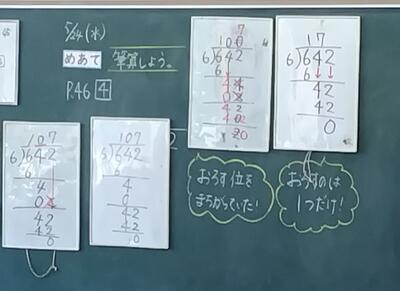 5/24(水)
めあて 筆算しよう。
P.46 4
107
6)642
6
4
0
42
42
0
107
6)642
6
4
0
42
42
0
7
100
6)642
6
17
6)642
6
42
42
0
おろす位を
まちがっていた!
おろすのは
1つだけ!